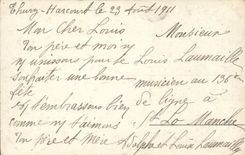 Thury-Harcourt le 23 Août 1911
Mon Cher Louis
Ton père et moi
unissons pour te
souhaiter une bonne
fête
t'embrassons bien
comme t'aimons
Ton père et Mère Adolphe et Louise Laumaille
Monsieur
Louis Laumaille
musicien au 136e
de ligne à
St Lo Manche